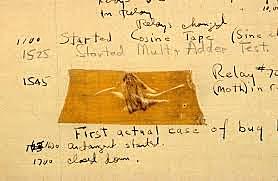 In relay
Relays changed
1100 Started Cosine Tape (Sine
1525 Started Mult+ Adder Test.
1545 Relay #70
(Moth) in r
First actual case of bug b
1630 antangent started.
1700 closed down.